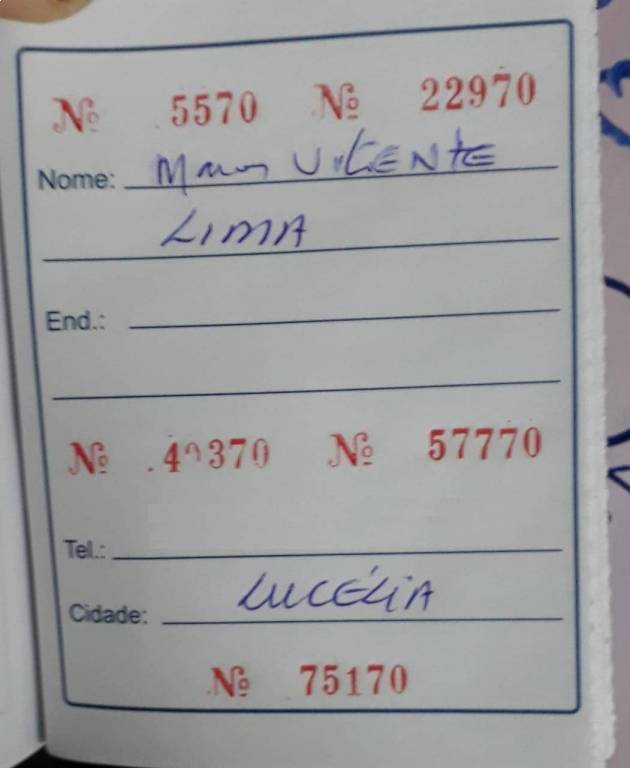 Nº 5570 Nº 22970
Nome: VICENTE
LIMA
End.:
Nº 40370 Nº 57770
Tel.:
Cidade: LUCÉLIA
Nº 75170